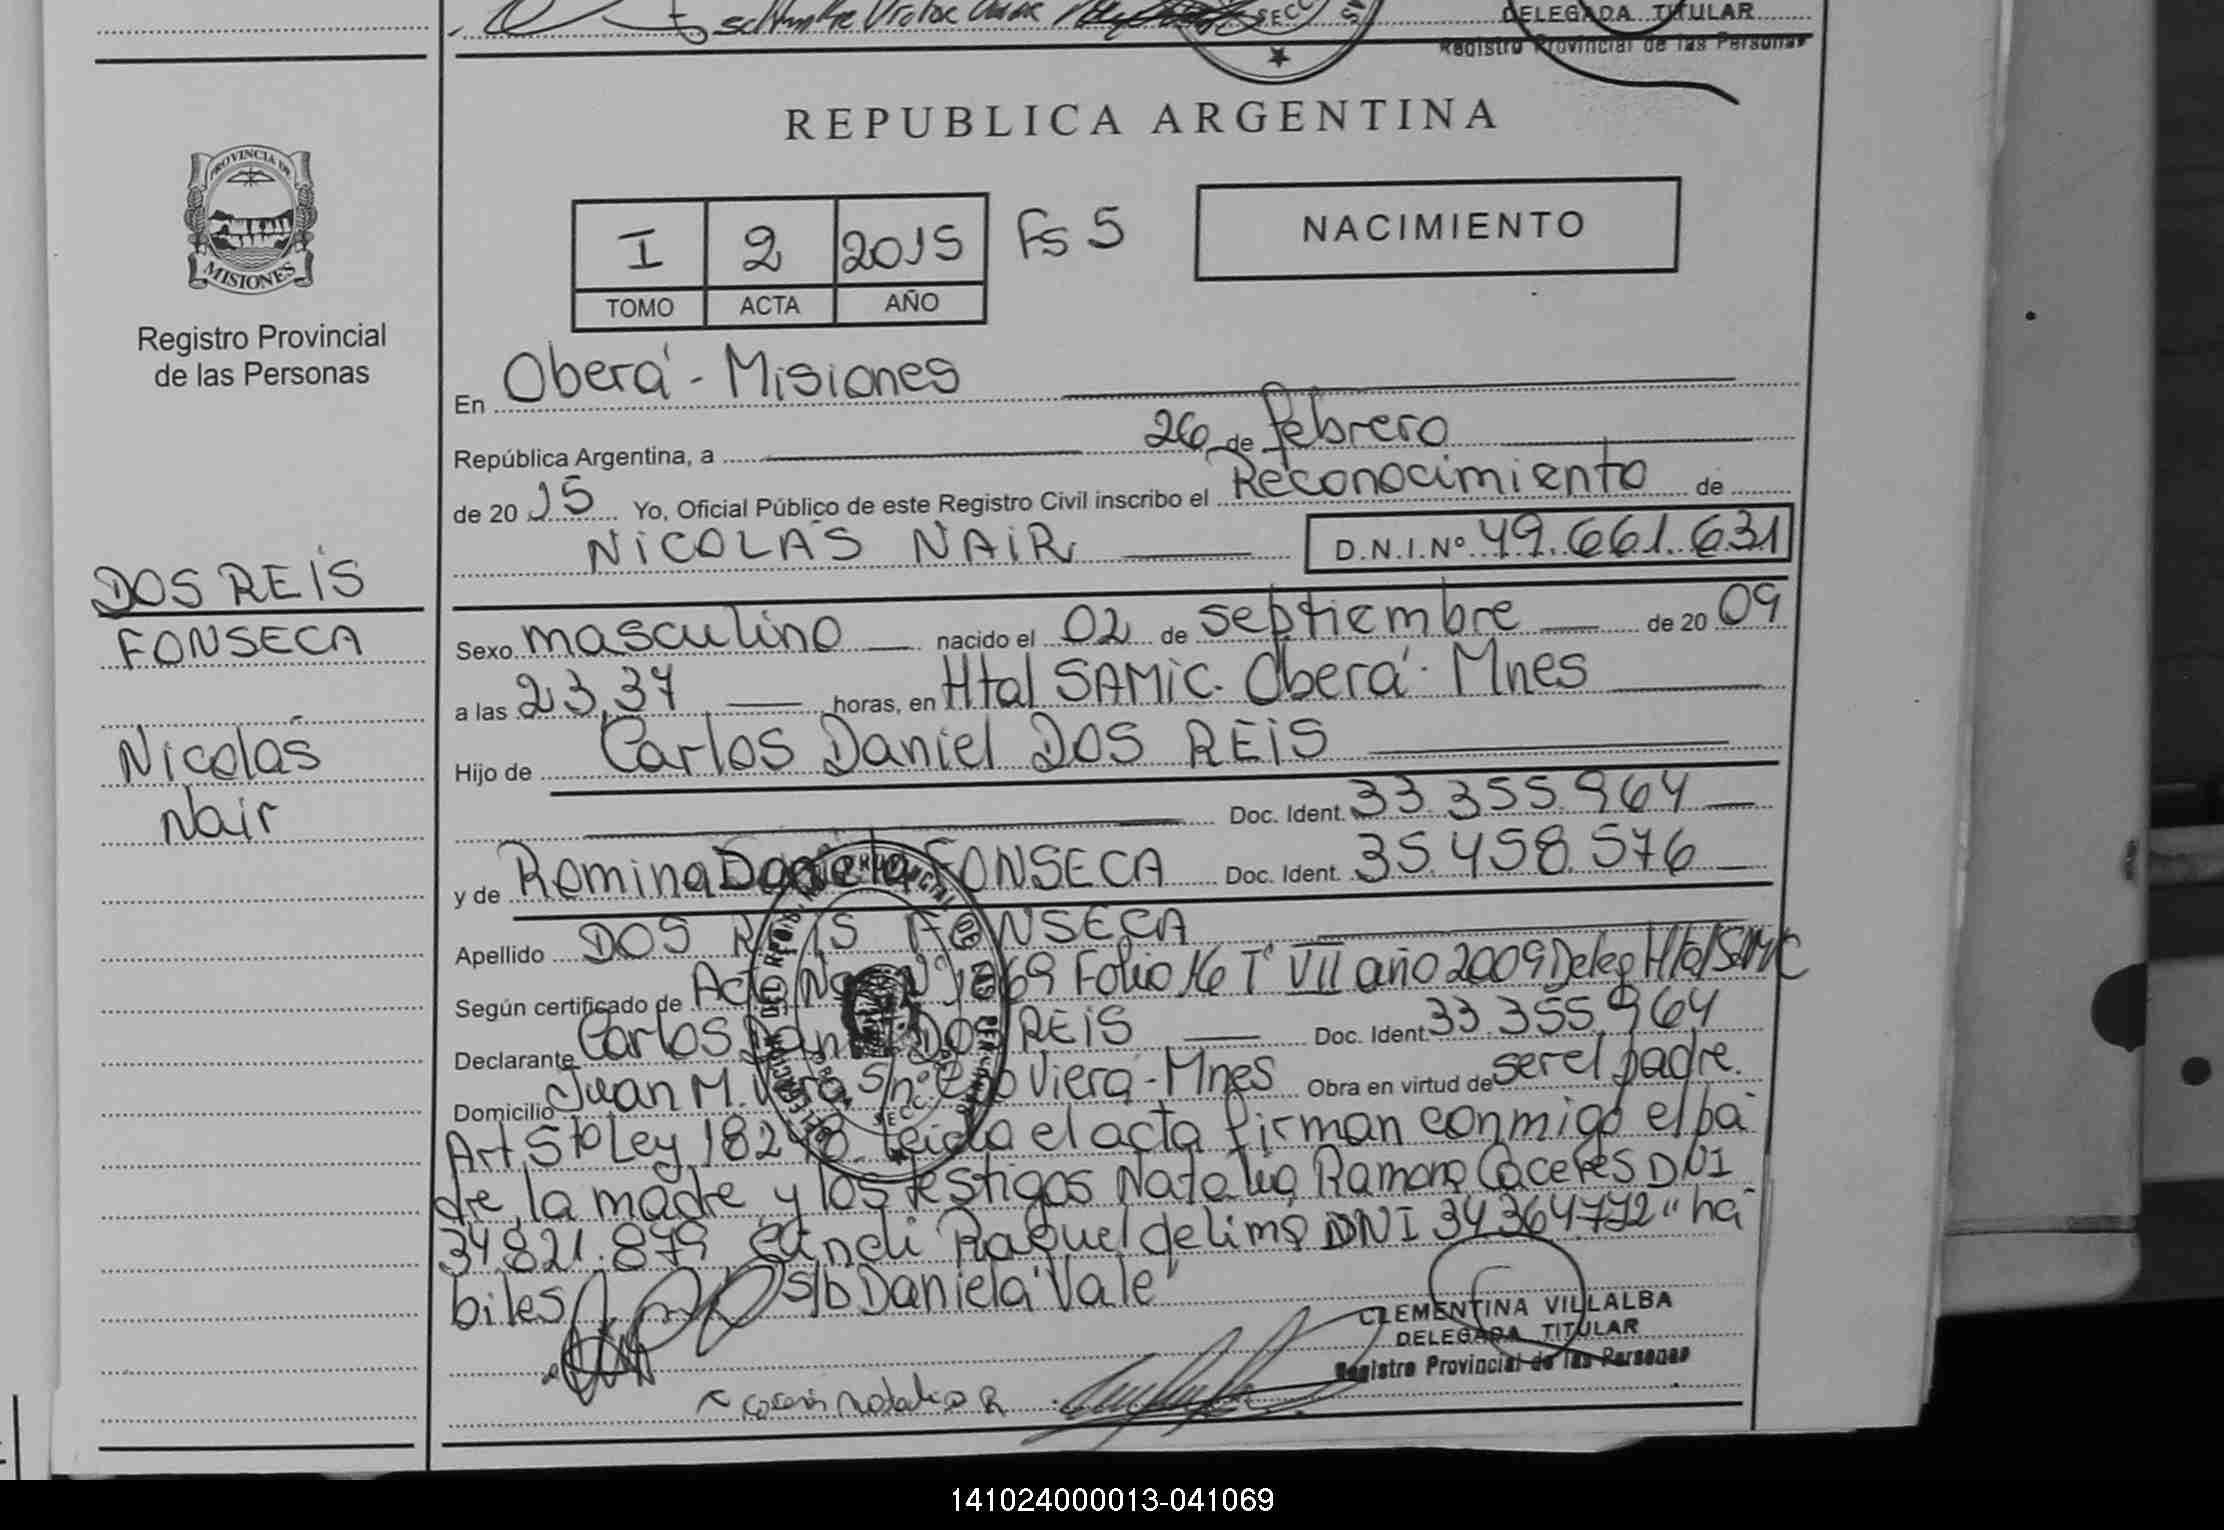 DELEGADA TITULAR
Registro Provincial de las Personas
SECC
PROVINCIA DE
MISIONES
Registro Provincial
de las Personas
DOS REIS
FONSECA
Nicolás
Nair
REPUBLICA ARGENTINA
I 2 2015 Fs 5
TOMO ACTA AÑO
NACIMIENTO
En Oberá - Misiones
República Argentina, a 26 de febrero
de 2015 Yo, Oficial Público de este Registro Civil inscribo el Reconocimiento de
NICOLÁS NAIR D.N.I.Nº 49.661.631
Sexo masculino nacido el 02 de septiembre de 2009
a las 23,37 horas, en Htal SAMIC. Oberá - Mnes
Hijo de Carlos Daniel DOS REIS
Doc. Ident. 33.355.964
y de Romina Daniela FONSECA Doc. Ident. 35.458.576
Apellido DOS REIS FONSECA
Según certificado de Acta Folio 16 Tº VII año 2009 Deleg Htal SAMIC
Declarante Carlos Daniel DOS REIS Doc. Ident. 33.355.964
Domicilio Juan M. s/nº Viera - Mnes Obra en virtud de ser el padre.
Art 5to Ley 18248. leida el acta firman conmigo el pa
dre, la madre y los testigos Natalia Ramona Caceres DNI
34.821.879 Raquel de lima DNI 34364772 "há
biles s/b Daniela "Vale"
CLEMENTINA VILLALBA
DELEGADA TITULAR
Registro Provincial de las Personas
141024000013-041069